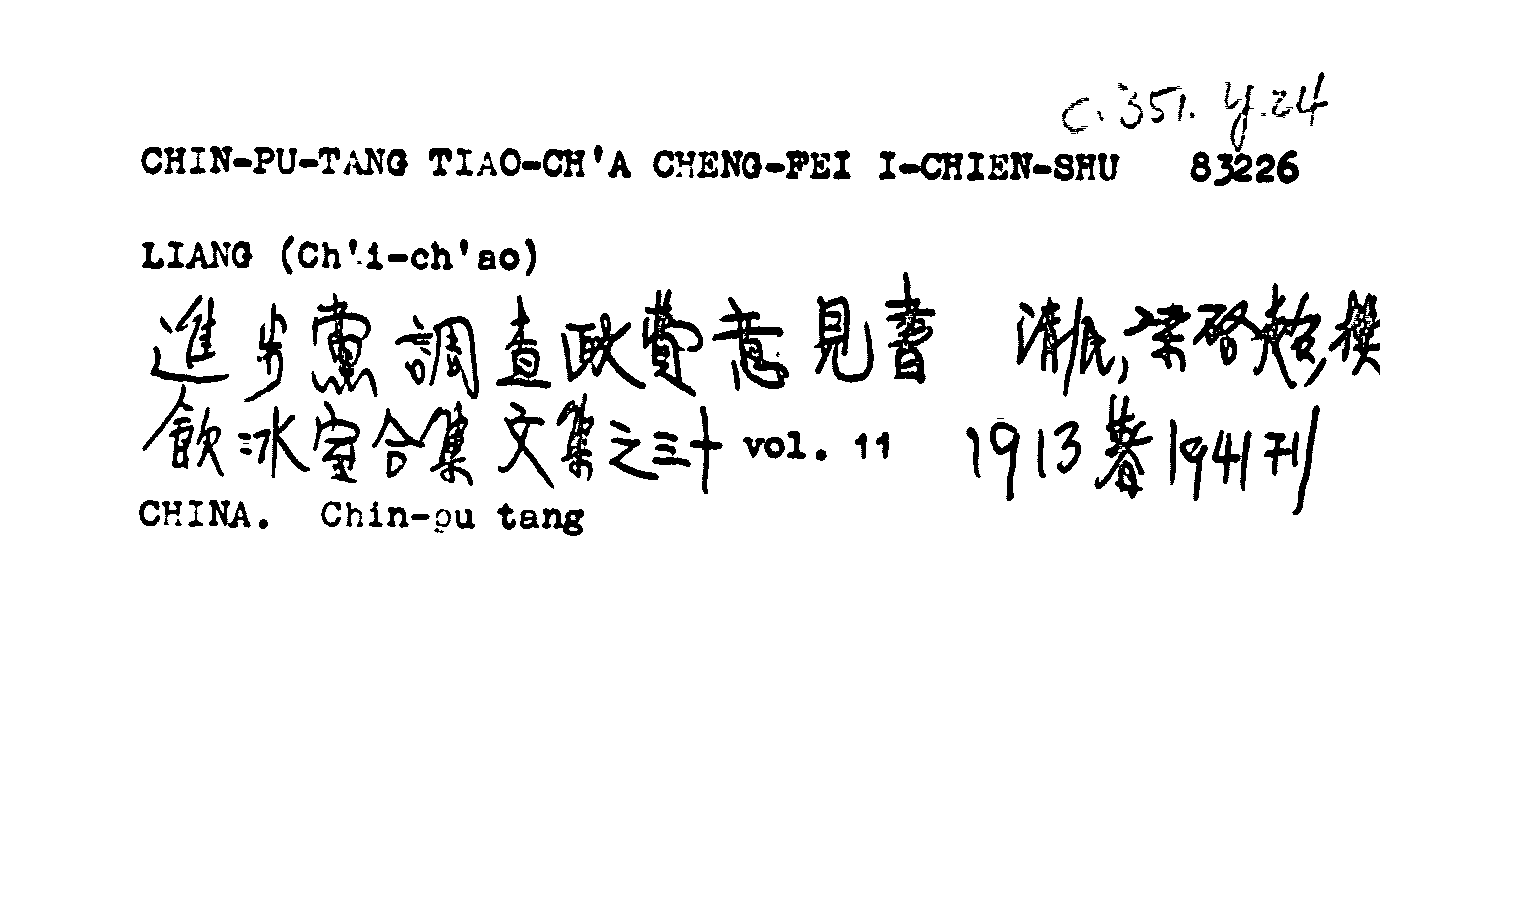 C. 351. y.24
CHIN-PU-TANG TIAO-CH'A CHENG-FEI I-CHIEN-SHU 83226
LIANG (Ch'i-ch'ao)
進步黨調查政費意見書 清民,梁啓超撰
飲冰室合集文集之三十 vol. 11 1913著1941刊
CHINA. Chin-pu tang